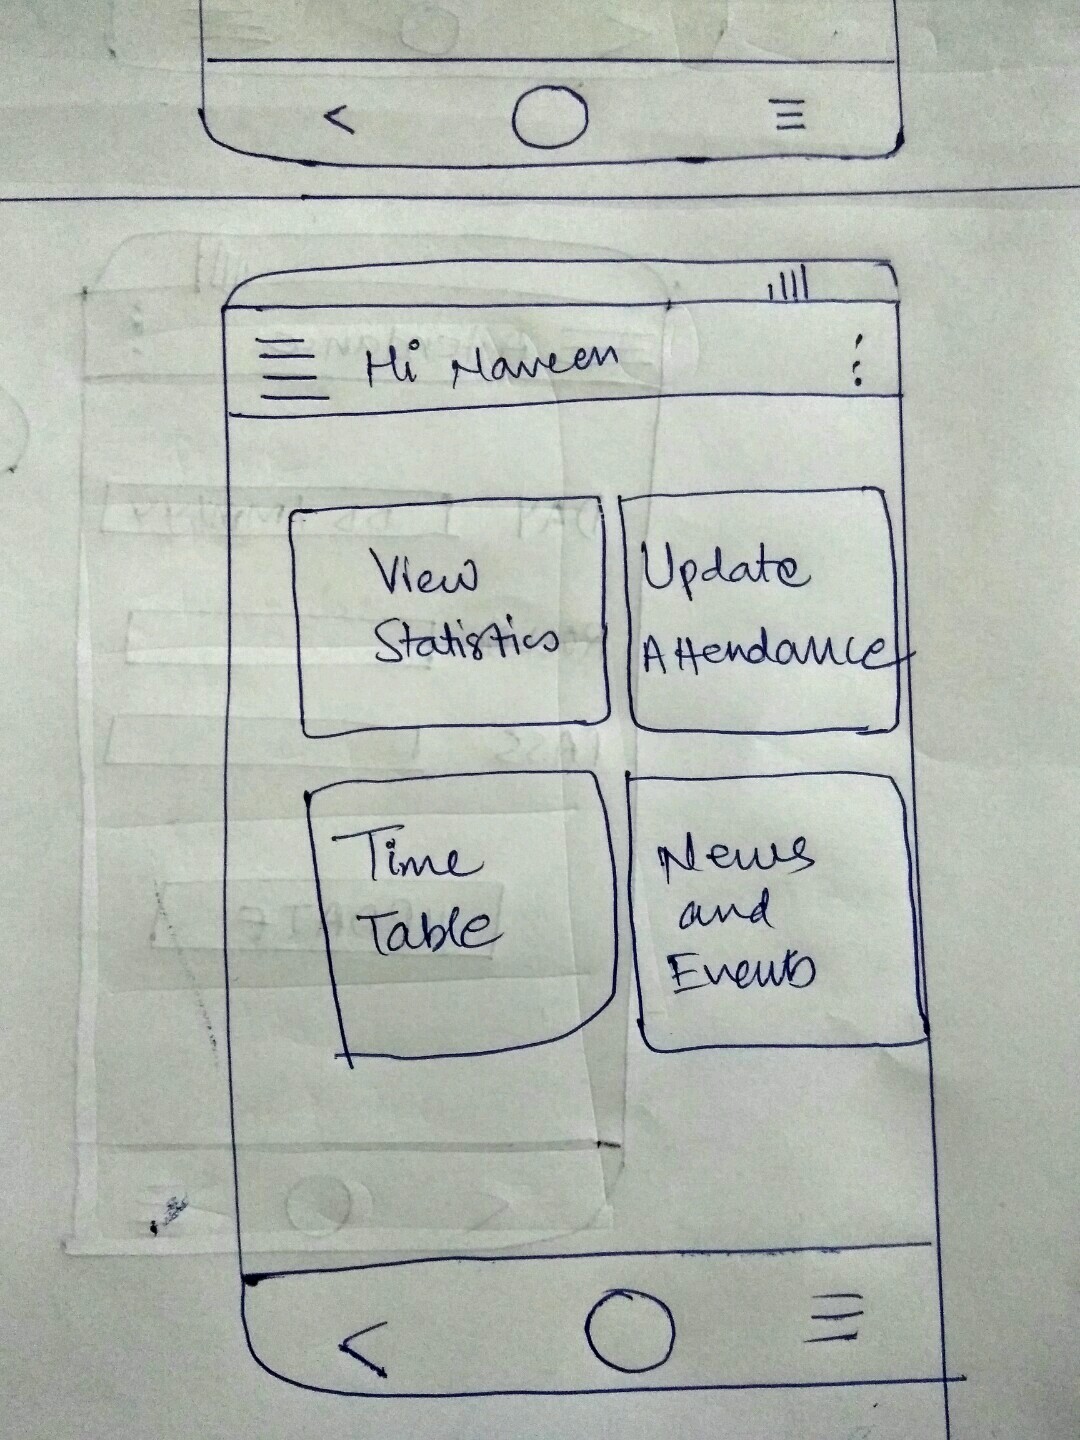 Hi Naveen
View
Statistics
Update
Attendance
Time
Table
News
and
Events